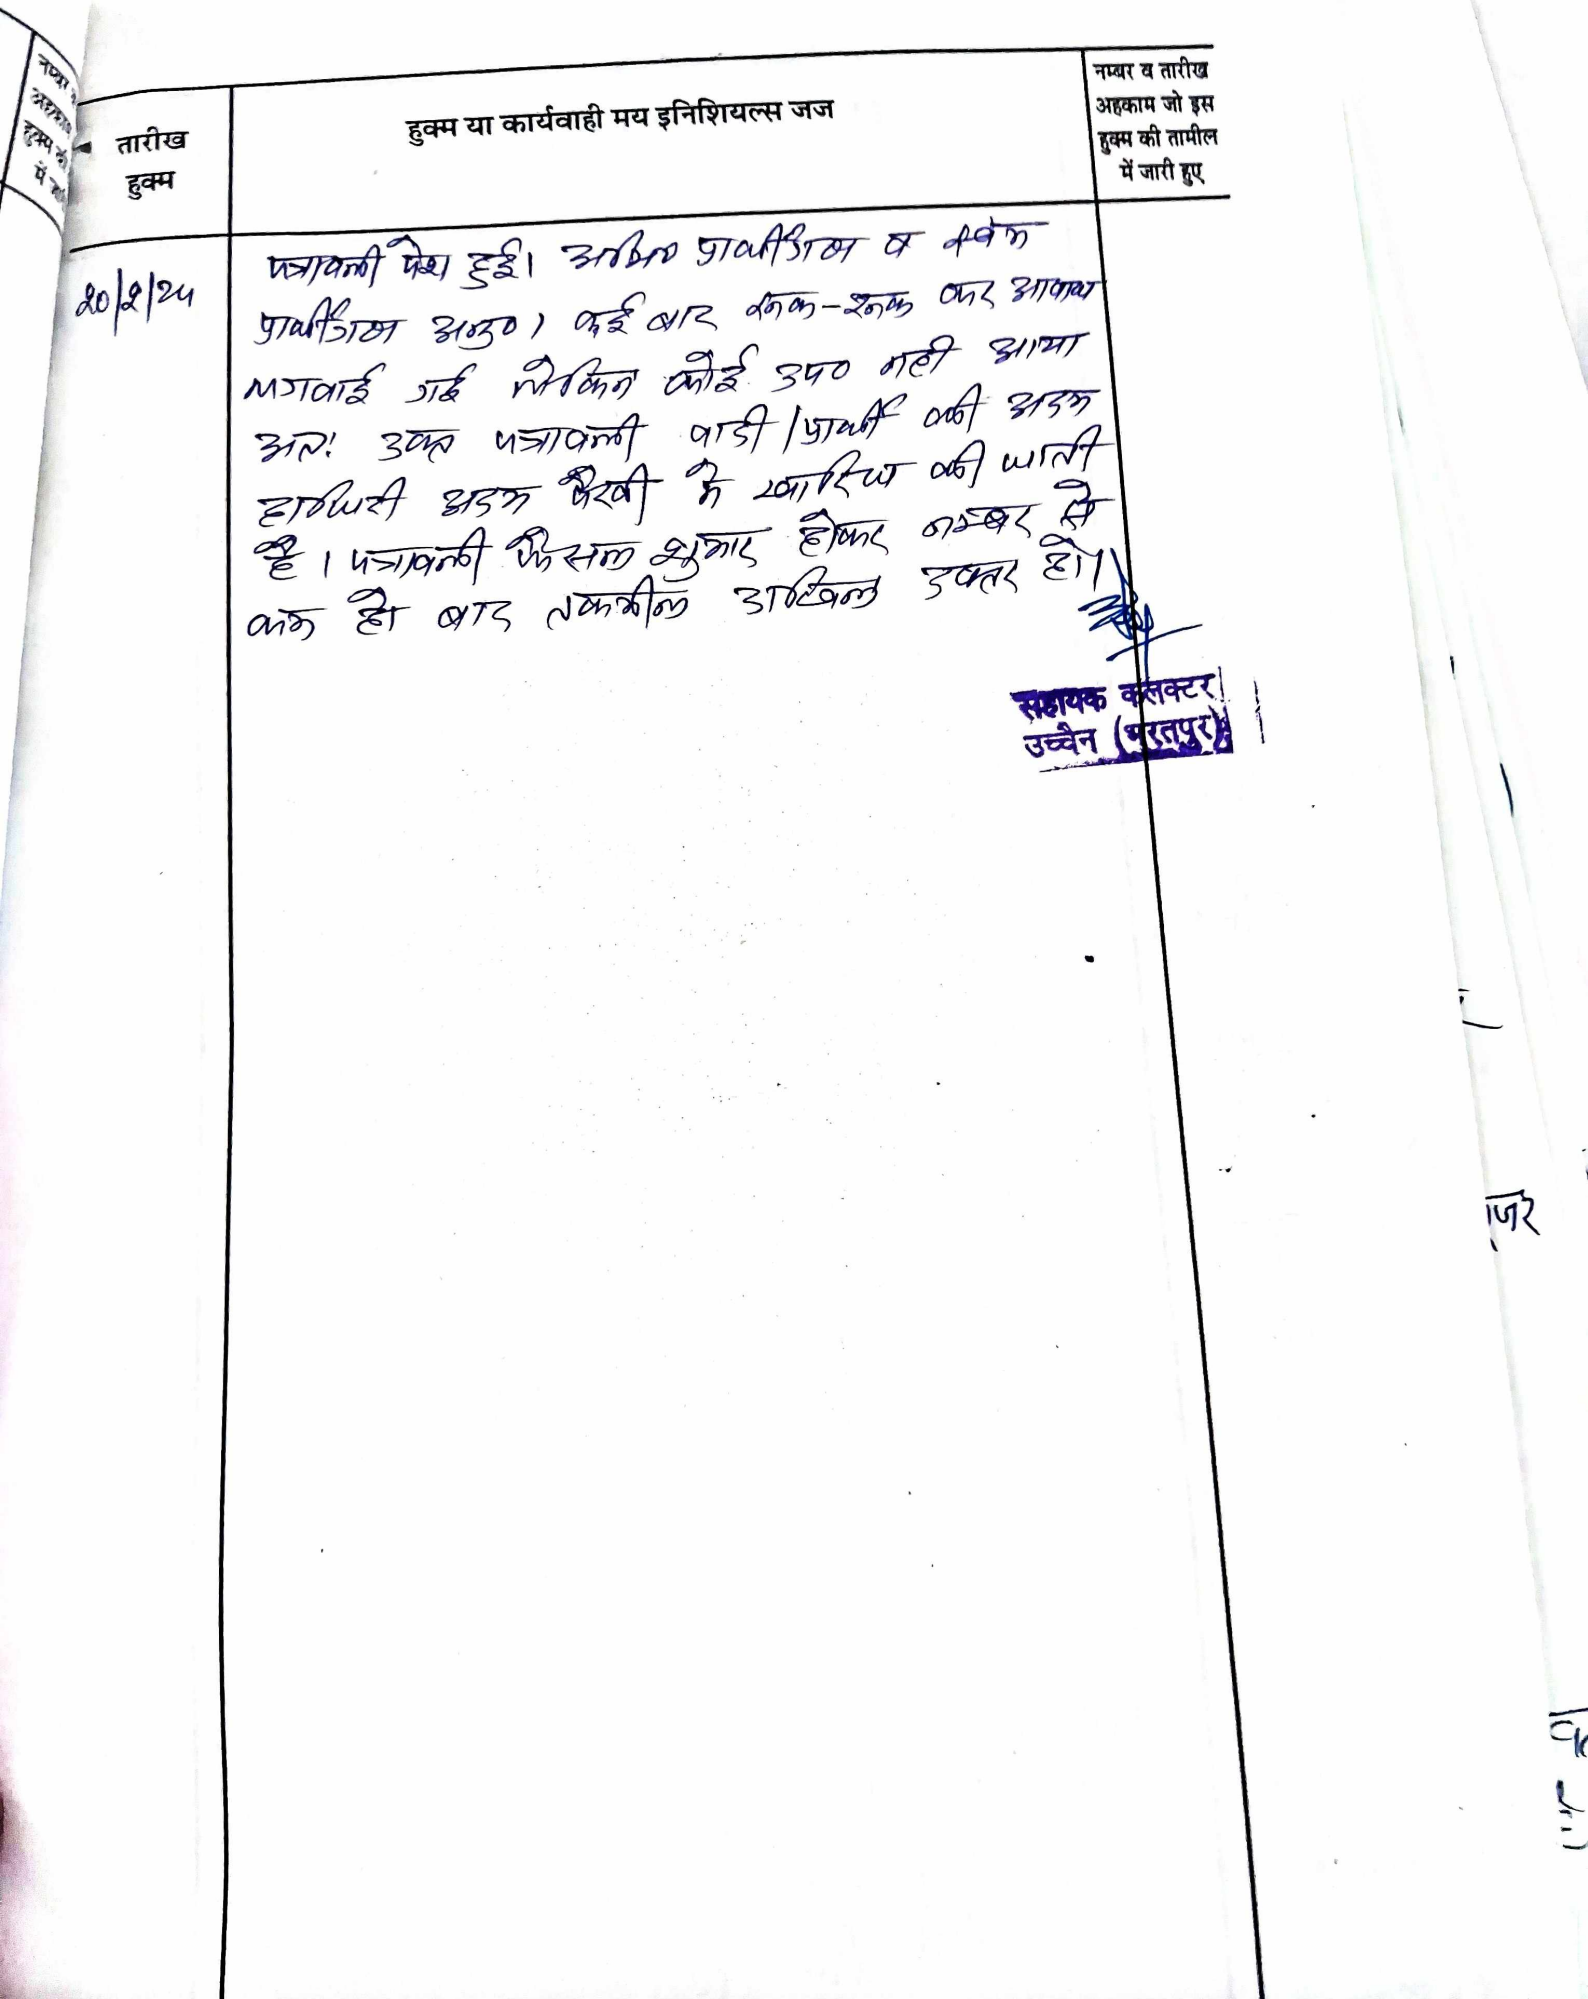 तारीख
हुक्म
हुक्म या कार्यवाही मय इनिशियल्स जज
नम्बर व तारीख
अहकाम जो इस
हुक्म की तामील
में जारी हुए
20/2/24
पत्रावली पेश हुई। अभि० प्रार्थीगण व स्वंम
प्रार्थीगण अनु०। कई बार रूक-रूक कर आवाज
लगवाई गई लेकिन कोई उप० नही आया
अतः उक्त पत्रावली वादी/प्रार्थी की अदम
हाजिरी अदम पैरवी मे खारिज की जाती
है। पत्रावली फैसल शुमार होकर नम्बर से
कम हो बाद तकमील दाखिल दफ्तर हो।
सहायक कलक्टर
उच्चैन (भरतपुर)